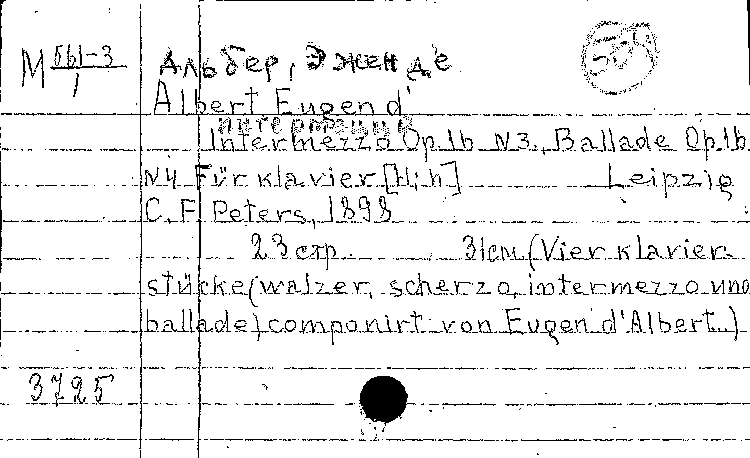 М 561-3 Альбер, Эжен де
1
Albert Eugen d'
интермеццо
Intermezzo Op.16 N3., Ballade Op.16
N4 Für Klavier [H; h] Leipzig
C. F. Peters, 1898
23 стр. 31см (Vier klavier-
stücke (walzer, scherzo, intermezzo und
ballade) componirt von Eugen d'Albert.)
3725